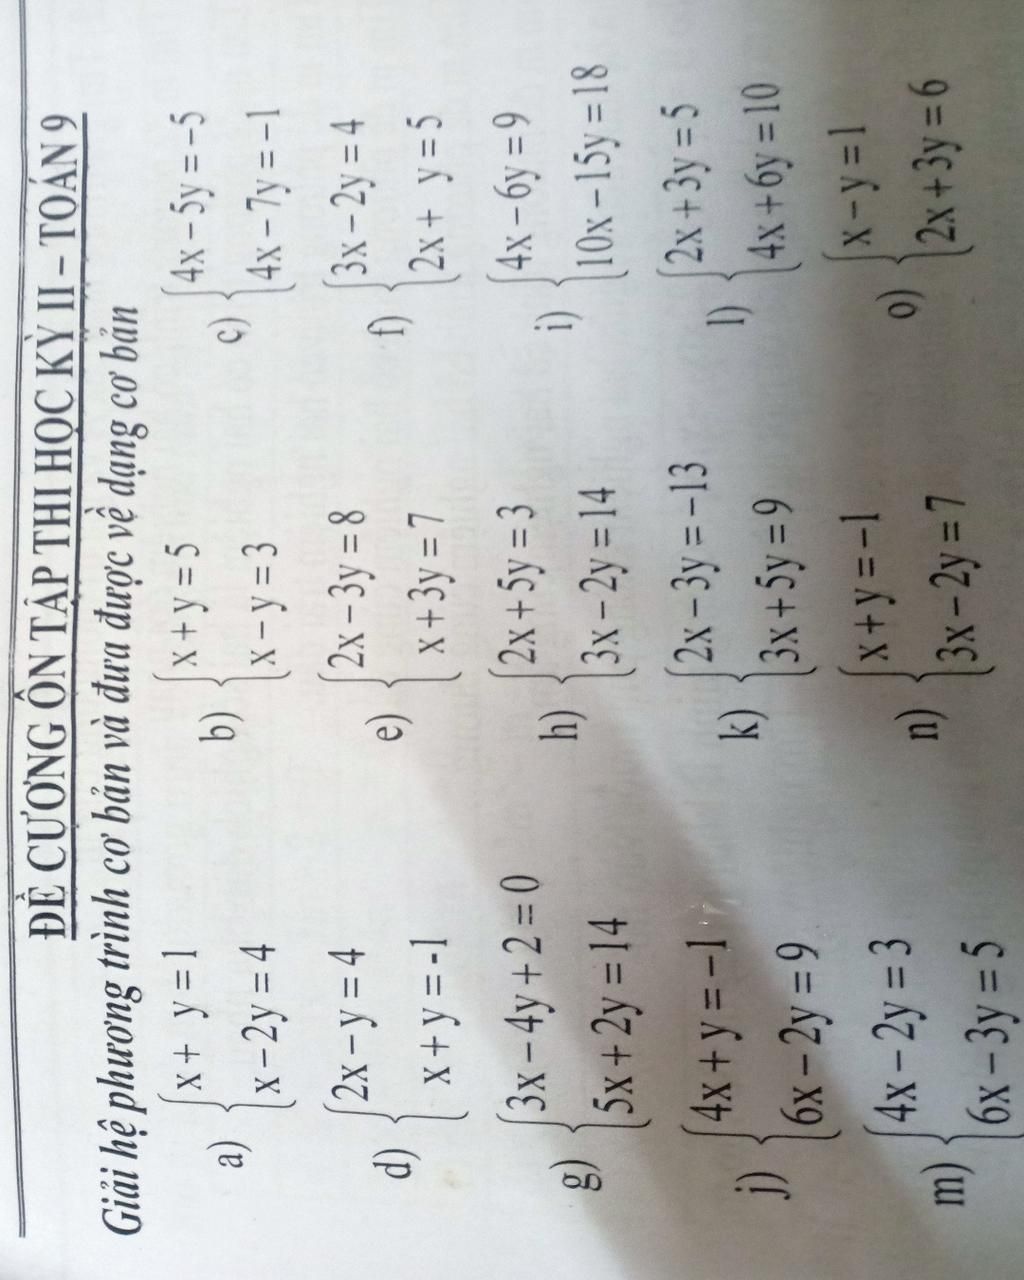 ĐỀ CƯƠNG ÔN TẬP THI HỌC KỲ II – TOÁN 9
Giải hệ phương trình cơ bản và đưa được về dạng cơ bản
a) { x + y = 1
x − 2y = 4
b) { x + y = 5
x − y = 3
c) { 4x − 5y = −5
4x − 7y = −1
d) { 2x − y = 4
x + y = -1
e) { 2x − 3y = 8
x + 3y = 7
f) { 3x − 2y = 4
2x + y = 5
g) { 3x − 4y + 2 = 0
5x + 2y = 14
h) { 2x + 5y = 3
3x − 2y = 14
i) { 4x − 6y = 9
10x − 15y = 18
j) { 4x + y = −1
6x − 2y = 9
k) { 2x − 3y = −13
3x + 5y = 9
l) { 2x + 3y = 5
4x + 6y = 10
m) { 4x − 2y = 3
6x − 3y = 5
n) { x + y = −1
3x − 2y = 7
o) { x − y = 1
2x + 3y = 6